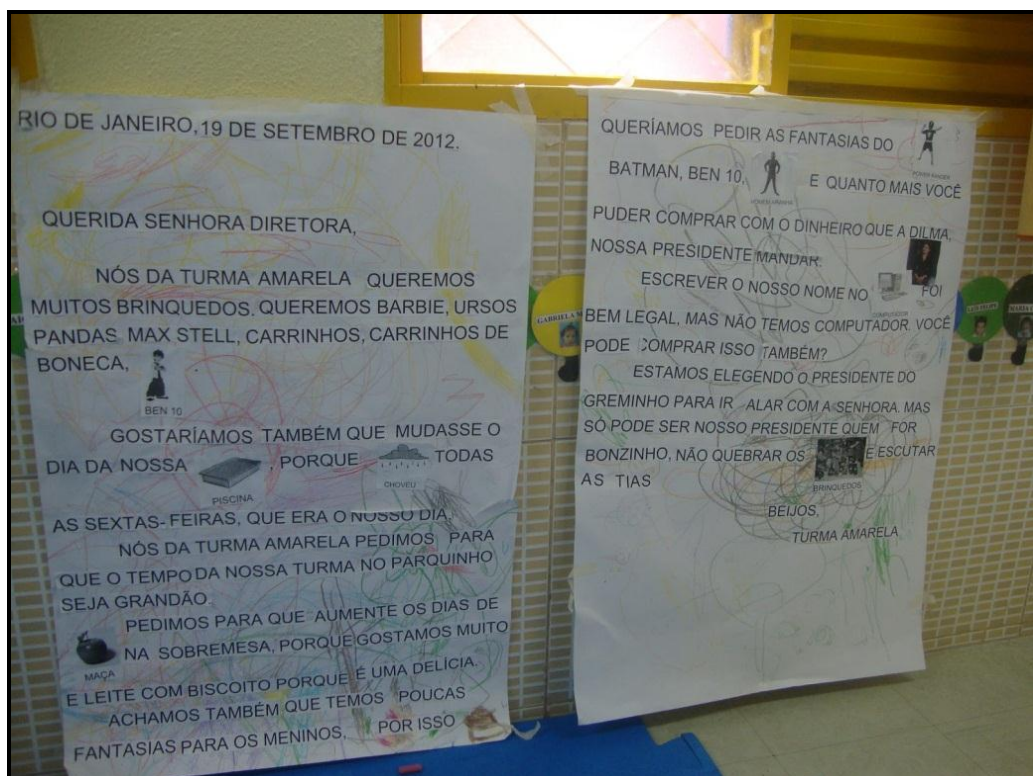 RIO DE JANEIRO, 19 DE SETEMBRO DE 2012.
QUERIDA SENHORA DIRETORA,
NÓS DA TURMA AMARELA QUEREMOS
MUITOS BRINQUEDOS. QUEREMOS BARBIE, URSOS
PANDAS MAX STELL, CARRINHOS, CARRINHOS DE
BONECA,
BEN 10
GOSTARÍAMOS TAMBÉM QUE MUDASSE O
DIA DA NOSSA , PORQUE TODAS
PISCINA CHOVEU
AS SEXTAS-FEIRAS, QUE ERA O NOSSO DIA.
NÓS DA TURMA AMARELA PEDIMOS PARA
QUE O TEMPO DA NOSSA TURMA NO PARQUINHO
SEJA GRANDÃO.
PEDIMOS PARA QUE AUMENTE OS DIAS DE
NA SOBREMESA, PORQUE GOSTAMOS MUITO
MAÇA
E LEITE COM BISCOITO PORQUE É UMA DELÍCIA.
ACHAMOS TAMBÉM QUE TEMOS POUCAS
FANTASIAS PARA OS MENINOS, POR ISSO
QUERÍAMOS PEDIR AS FANTASIAS DO
POWER RANGER
BATMAN, BEN 10, E QUANTO MAIS VOCÊ
HOMEM ARANHA
PUDER COMPRAR COM O DINHEIRO QUE A DILMA,
NOSSA PRESIDENTE MANDAR.
ESCREVER O NOSSO NOME NO FOI
COMPUTADOR
BEM LEGAL, MAS NÃO TEMOS COMPUTADOR. VOCÊ
PODE COMPRAR ISSO TAMBÉM?
ESTAMOS ELEGENDO O PRESIDENTE DO
GREMINHO PARA IR ALAR COM A SENHORA. MAS
SÓ PODE SER NOSSO PRESIDENTE QUEM FOR
BONZINHO, NÃO QUEBRAR OS E ESCUTAR
BRINQUEDOS
AS TIAS
BEIJOS,
TURMA AMARELA
GABRIELA